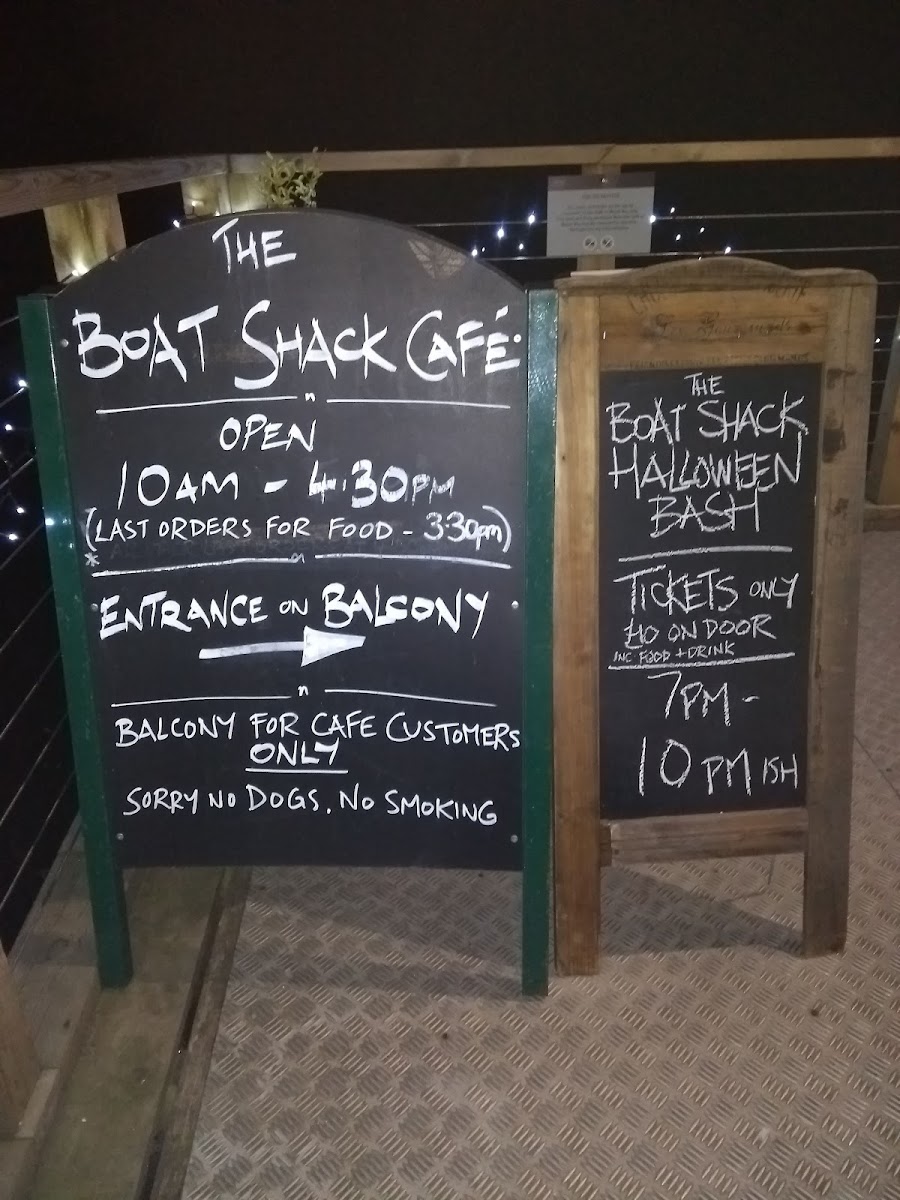 THE
BOAT SHACK CAFÉ.
OPEN
10AM - 4.30PM
(LAST ORDERS FOR FOOD - 330pm)
*
ENTRANCE ON BALCONY
BALCONY FOR CAFE CUSTOMERS
ONLY
SORRY NO DOGS. NO SMOKING
THE
BOAT SHACK
HALLOWEEN
BASH
TICKETS ONLY
£10 ON DOOR
INC FOOD + DRINK
7PM -
10PM ISH